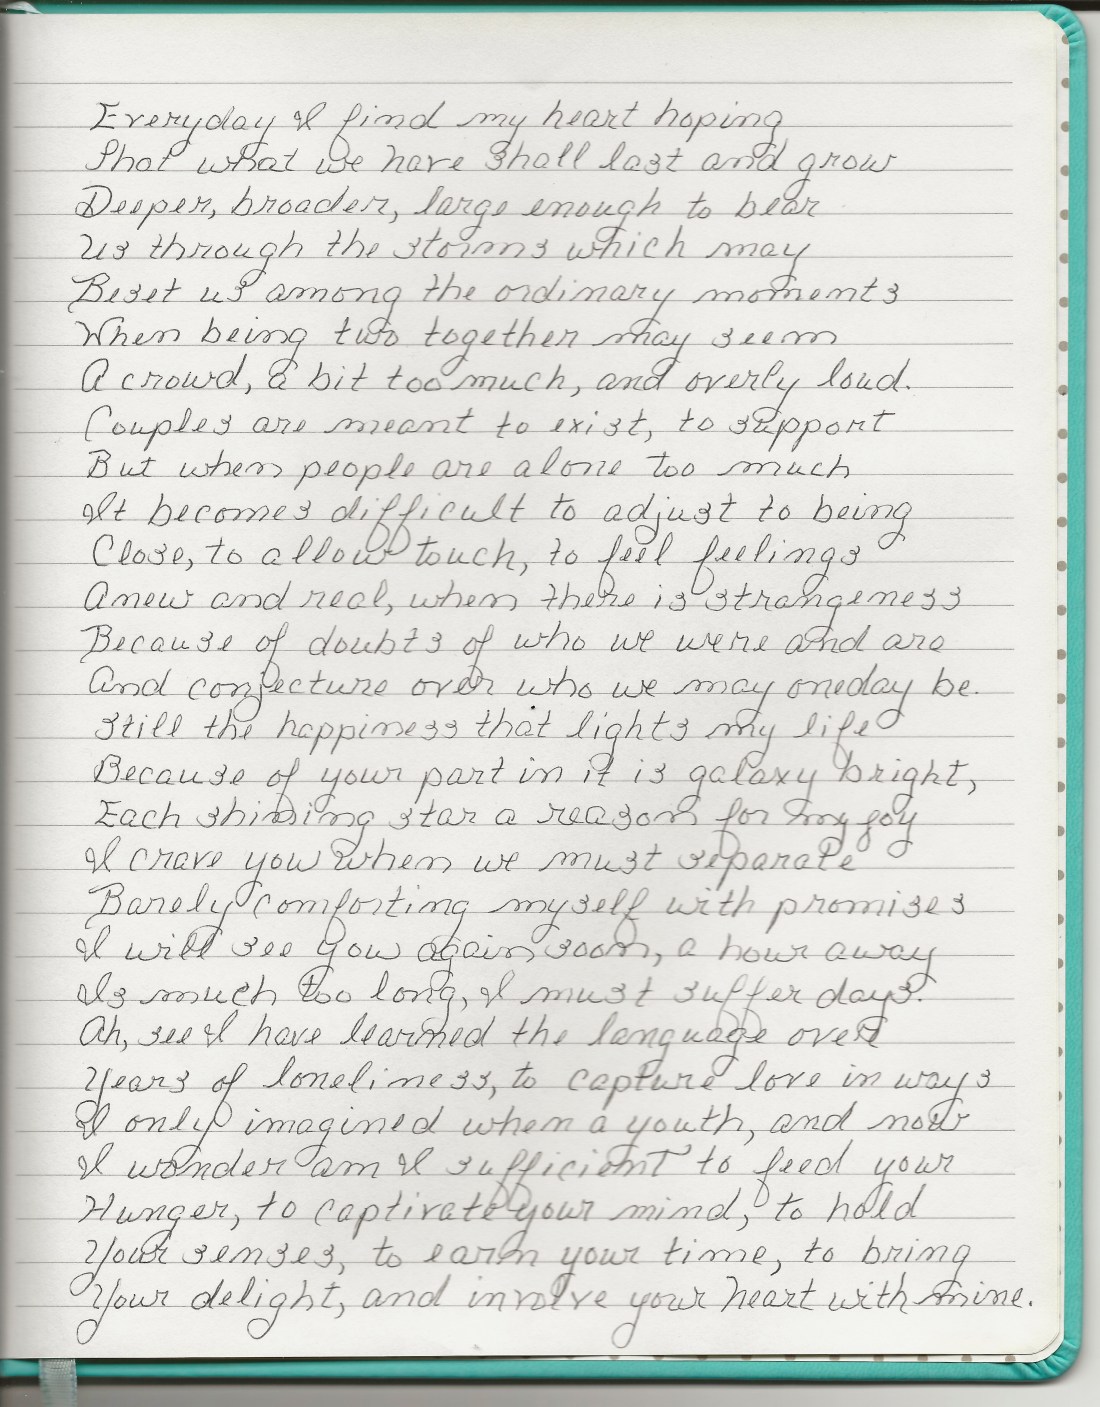 Everyday I find my heart hoping
That what we have shall last and grow
Deeper, broader, large enough to bear
Us through the storms which may
Beset us among the ordinary moments
When being two together may seem
A crowd, a bit too much, and overly loud.
Couples are meant to exist, to support
But when people are alone too much
It becomes difficult to adjust to being
Close, to allow touch, to feel feelings
Anew and real, when there is strangeness
Because of doubts of who we were and are
And conjecture over who we may oneday be.
Still the happiness that lights my life
Because of your part in it is galaxy bright,
Each shining star a reason for my joy
I crave you when we must separate
Barely comforting myself with promises
I will see you again soon, a hour away
Is much too long, I must suffer days.
Ah, see I have learned the language over
Years of loneliness, to capture love in ways
I only imagined when a youth, and now
I wonder am I sufficient to feed your
Hunger, to captivate your mind, to hold
Your senses, to earn your time, to bring
Your delight, and involve your heart with mine.